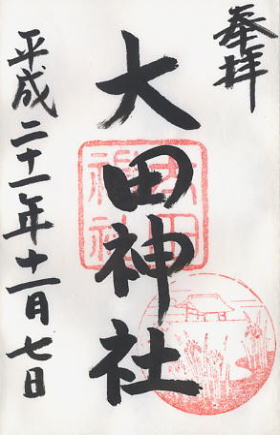 奉拝
大田神社
平成二十一年十一月七日
大田神社